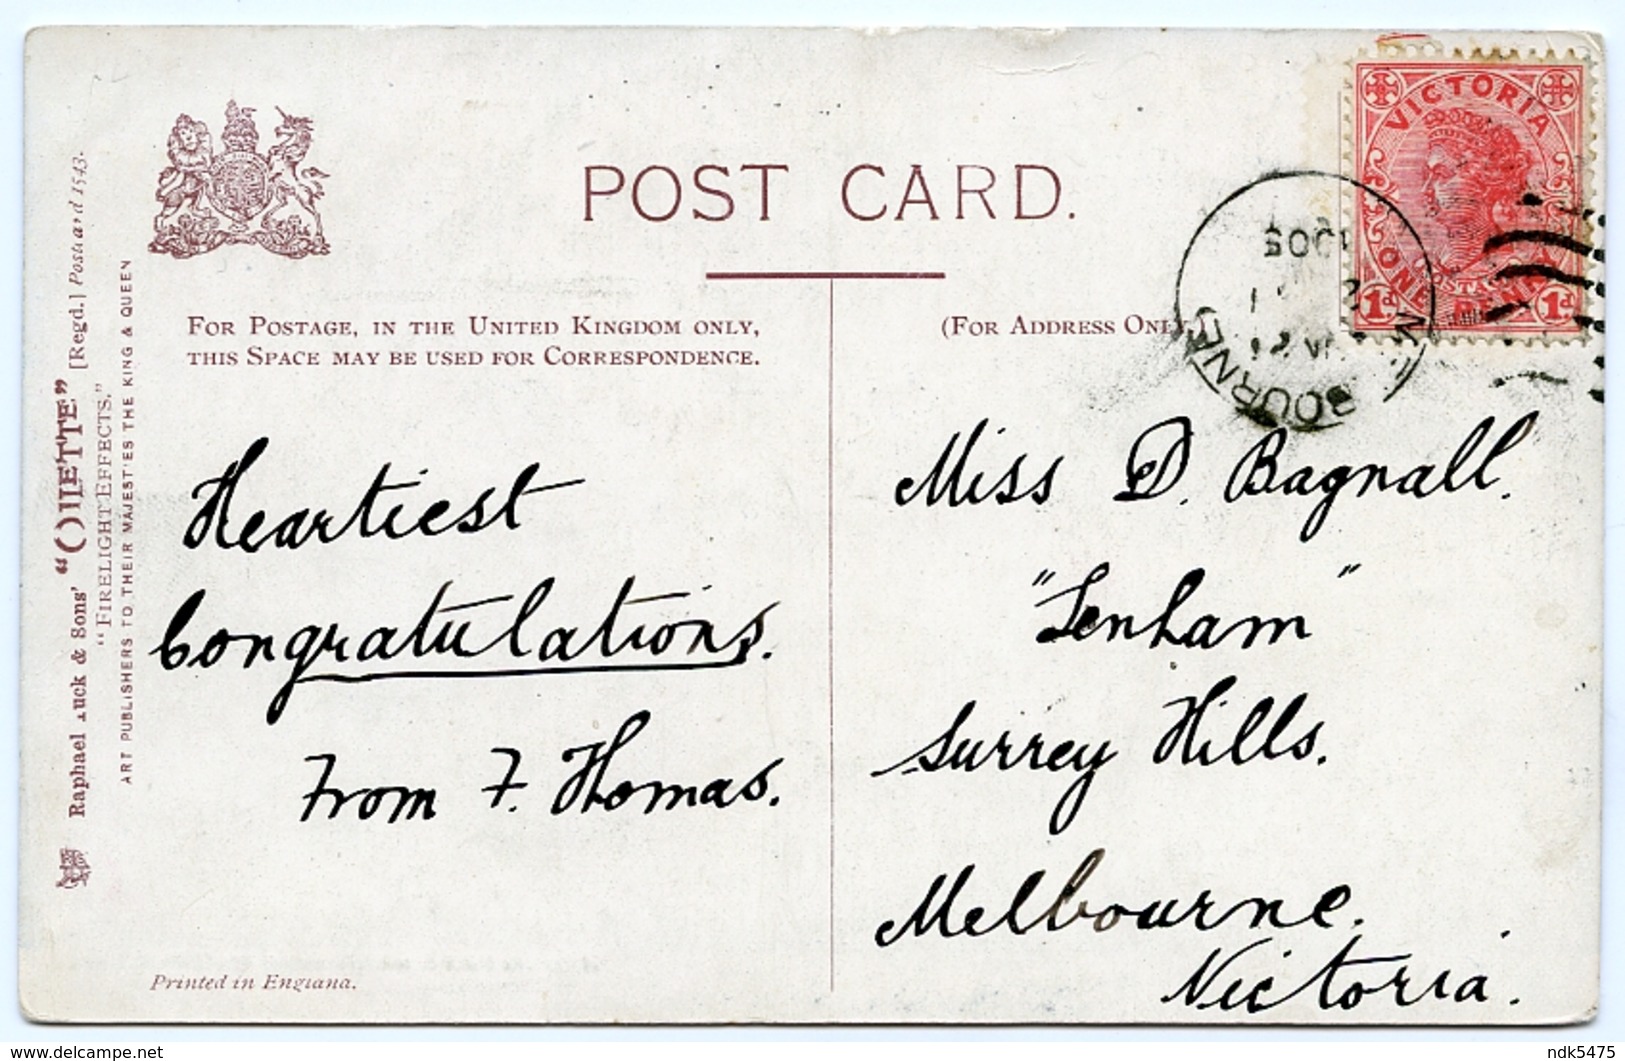 POST CARD.
FOR POSTAGE, IN THE UNITED KINGDOM ONLY,
THIS SPACE MAY BE USED FOR CORRESPONDENCE.
(FOR ADDRESS ONLY.)
Raphael Tuck & Sons' "OILETTE" [Regd.] Postcard 1543.
"FIRELIGHT EFFECTS."
ART PUBLISHERS TO THEIR MAJESTIES THE KING & QUEEN
VICTORIA
ONE PENNY
1d 1d
Heartiest
Congratulations.
From F. Thomas.
Miss D. Bagnall.
"Lenham"
Surrey Hills.
Melbourne.
Victoria.
Printed in England.
ndk5475
www.delcampe.net